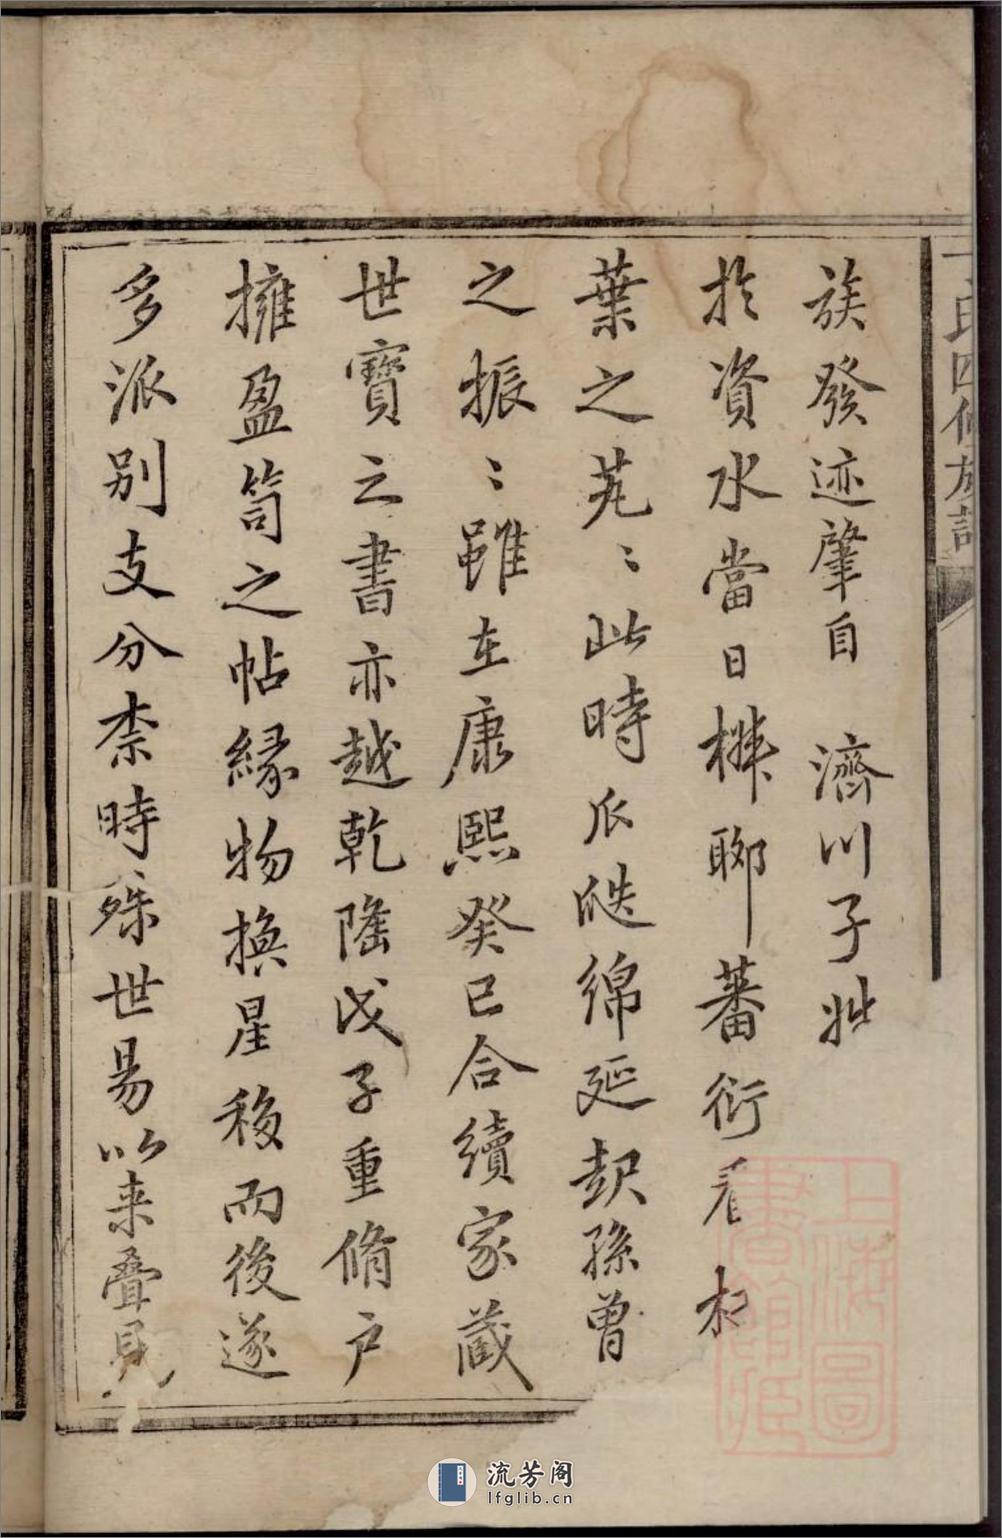 氏四修族譜
族發迹肇自 濟川子姓
於資水當日椒聊蕃衍看
葉之芃〻此時瓜瓞綿延起孫曾
之振〻雖在康熙癸巳合續家藏
世寶之書亦越乾隆戊子重脩户
擁盈笥之帖緣物換星移而後遂
多派別支分柰時殊世易以来疊見
上海圖書館藏
流芳阁
lfglib.cn